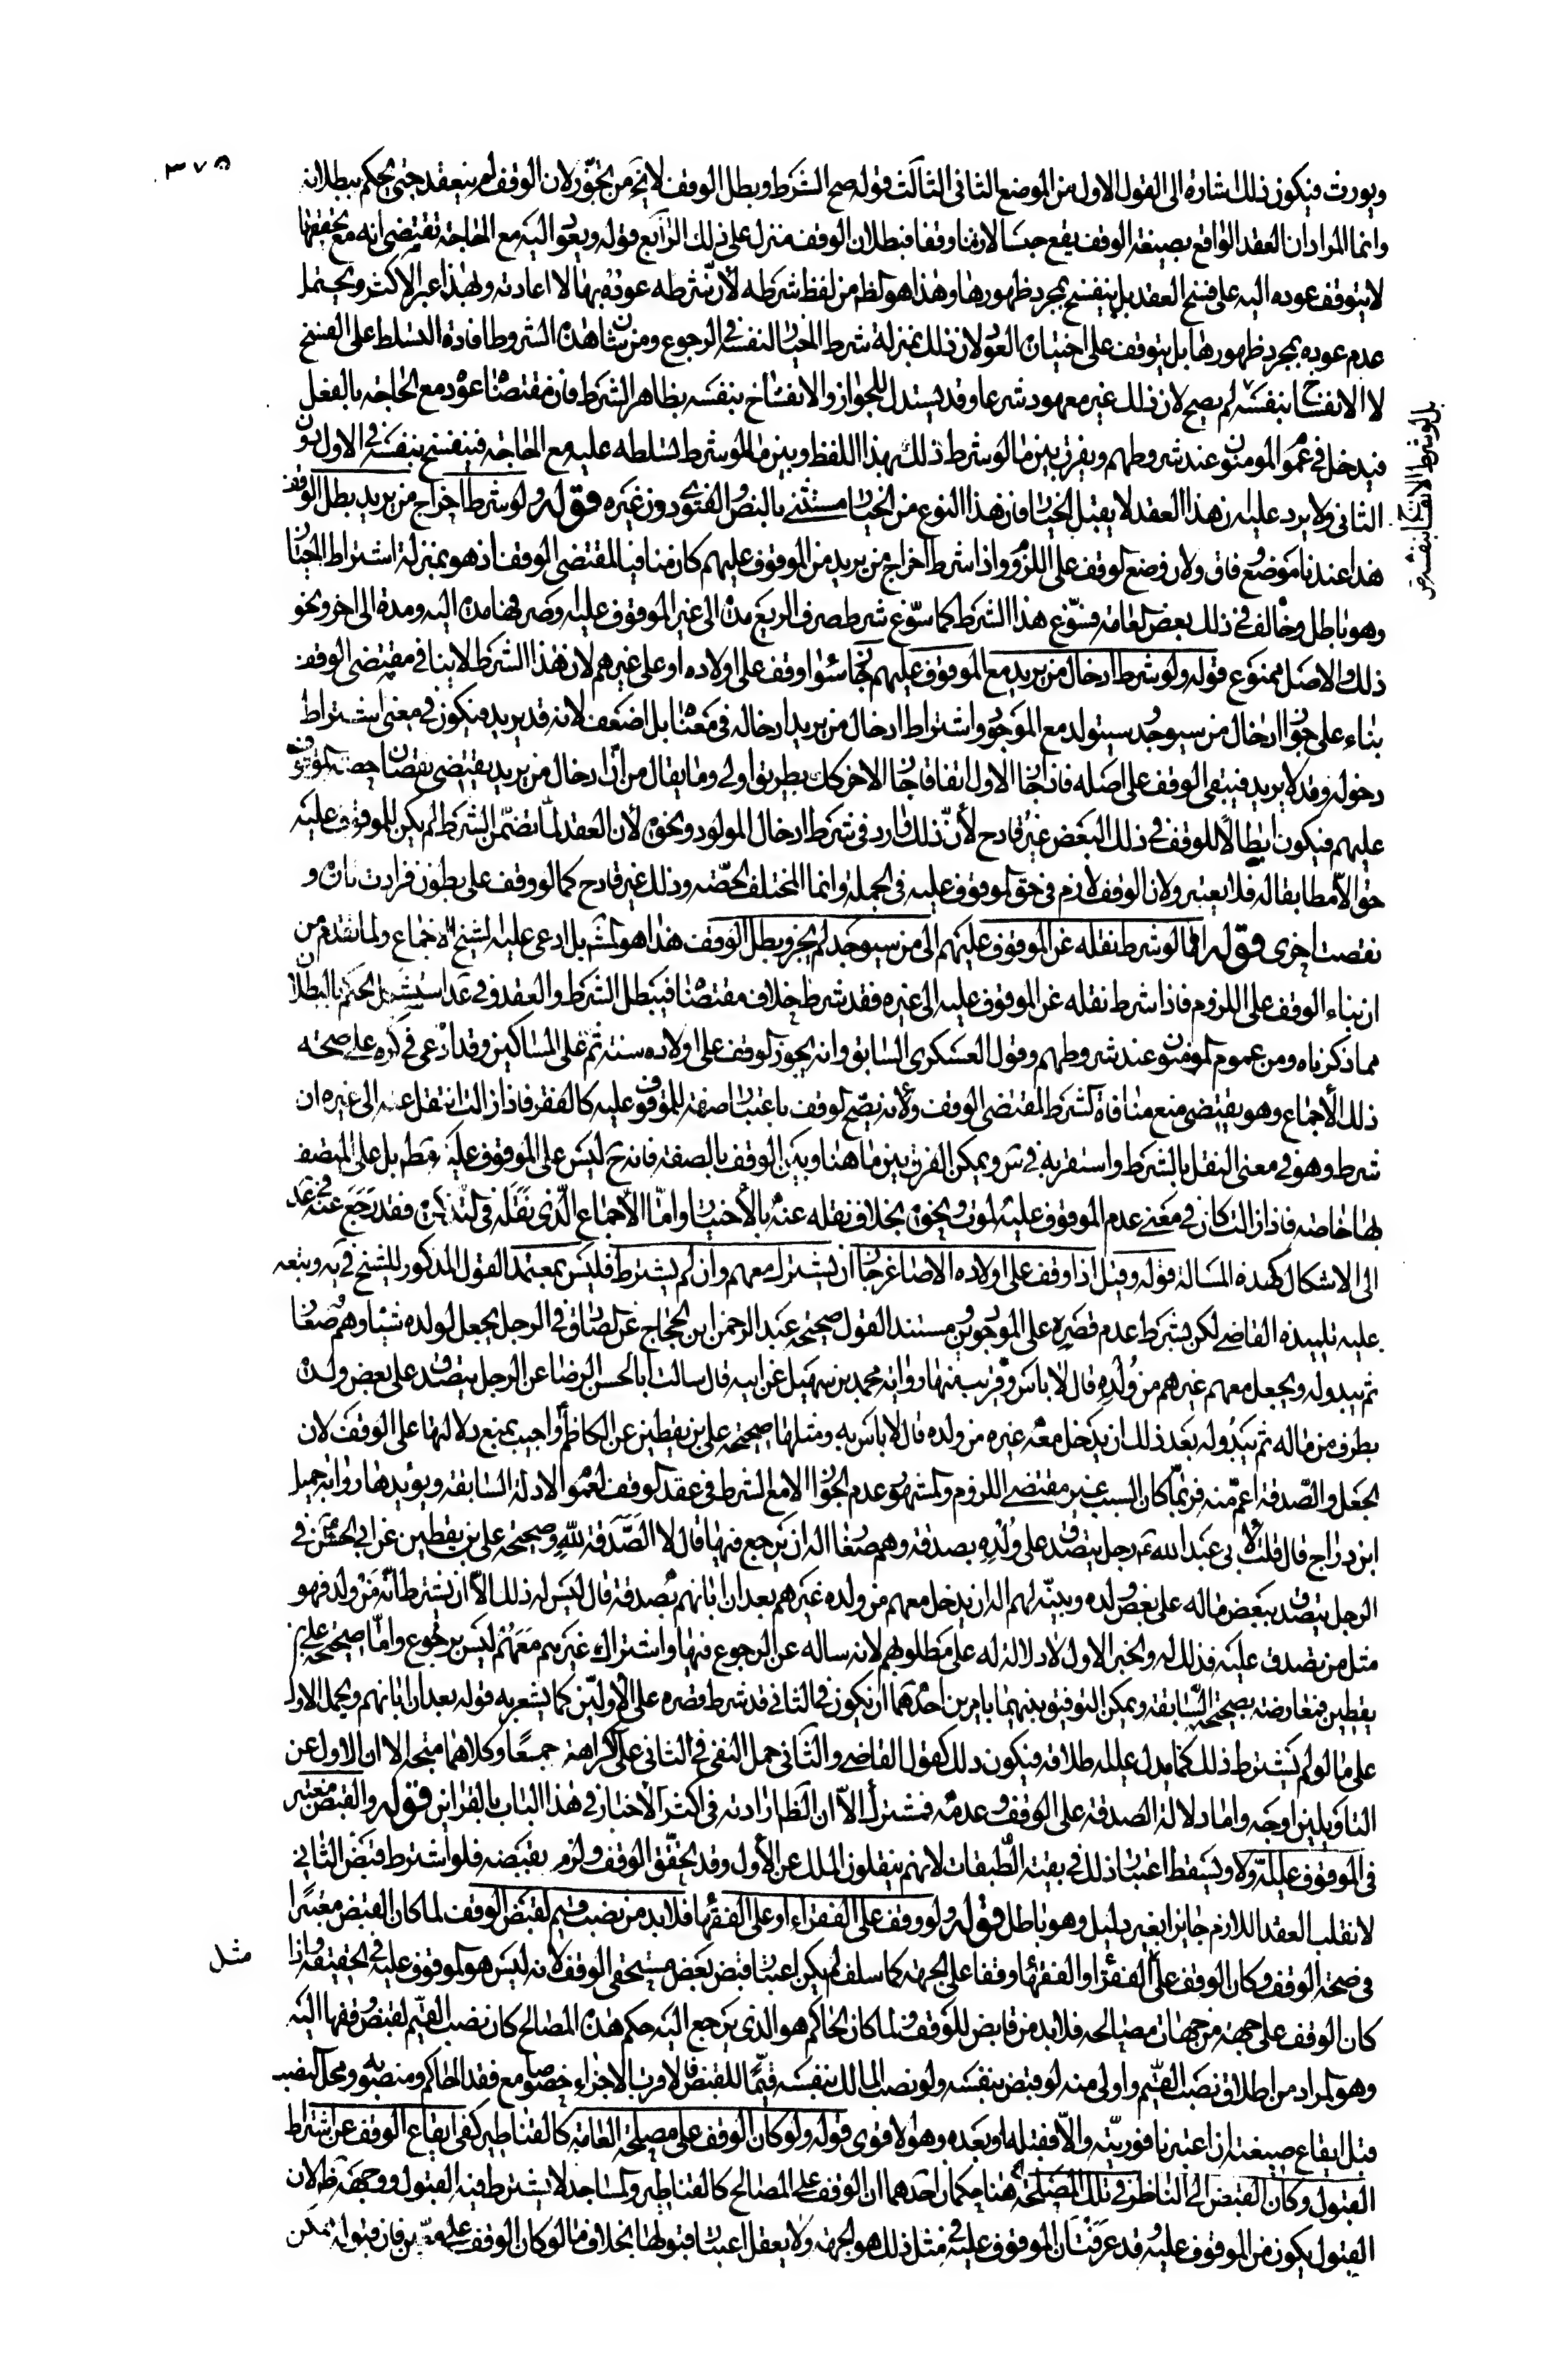 ٣٧٥
ويورث فيكون ذلك اشارة الى القول الاول من الموضع الثانى الثالث قوله صح الشرط وبطل الوقف لا يخ من تجوّز لان الوقف لم ينعقد حتى يحكم ببطلانه
وانما المراد ان العقد الواقع بصيغة الوقف يقع حبسا لازما وقفا فبطلان الوقف منزل على ذلك الرابع قوله ويعود اليه مع الحاجة تقتضى انه مع تحققها
لا يتوقف عوده اليه على فسخ العقد بل ينفسخ بمجرد ظهورها وهذا هو الظم من لفظ شرطه لانّ شرطه عوده بها لا اعادته ولهذا عبر الاكثر ويحتمل
عدم عوده بمجرد ظهورها بل يتوقف على اختيار العود لان ذلك بمنزلة شرط الخيار لنفسه فى الرجوع ومن شان هذه الشروط افادة التسلط على الفسخ
لا الانفساخ بنفسه لم يصح لان ذلك غير معهود شرعا وقد يستدل للجواز والانفساخ بنفسه بظاهر الشرط فان مقتضاه عوده مع الحاجة بالفعل
بل لو شرط الانفساخ بنفسه صح
فيدخل فى عموم المومنون عند شروطهم ويفرق بين ما لو شرط ذلك بهذا اللفظ وبين ما لو شرط تسلطه عليه مع الحاجة فينفسخ بنفسه فى الاول دون
الثانى ولا يرد عليه ان هذا العقد لا يقبل الخيار فان هذا النوع من الخيار مستثنى بالنص والفتوى دون غيره قوله ولو شرط اخراج من يريد بطل الوقف
هذا عندنا موضع وفاق ولان وضع الوقف على اللزوم واذا شرط اخراج من يريد من الموقوف عليهم كان منافيا لمقتضى الوقف اذ هو بمنزلة اشتراط الخيار
وهو باطل وخالف فى ذلك بعض العامة فسوّغ هذا الشرط كما سوّغ شرط صرف الريع مدة الى غير الموقوف عليه وصرفها مدة اليه ومدة الى اخر ونحو
ذلك والاصل ممنوع قوله ولو شرط ادخال من يريد مع الموقوف عليهم جاز سواء وقف على اولاده او على غيرهم لان هذا الشرط لا ينافى مقتضى الوقف
بناء على جواز ادخال من سيوجد سيتولد مع الموجود واشتراط ادخال من يريد ادخاله فى معناه بل اضعف لانه قد يريد فيكون فى معنى اشتراط
دخوله وقد لا يريد فيبقى الوقف على اصله فاذا جاز الاول اتفاقا جاز الاخر كك بطريق اولى وما يقال من أنّ ادخال من يريد يقتضى نقصان حصة الموقوف
عليهم فيكون ابطالا للوقف فى ذلك البعض غير قادح لأنّ ذلك وارد فى شرط ادخال المولود ونحوه لأن العقد لمّا تضمّن الشرط لم يكن للموقوف عليه
حق الا مطابقا له فلا يعتبر ولان الوقف لازم فى حق الموقوف عليه فى الجملة وانما المختلف الحصّة وذلك غير قادح كما لو وقف على بطون فزادت تارة و
نقصت اخرى قوله اما لو شرط نقله عن الموقوف عليهم الى من سيوجد لم يجز وبطل الوقف هذا هو المشهر بل ادعى عليه الشيخ الاجماع ولما تقدم من
ان بناء الوقف على اللزوم فاذا شرط نقله عن الموقوف عليه الى غيره فقد شرط خلاف مقتضاه فيبطل الشرط والعقد وفى عد استشكل الحكم بالبطلان
مما ذكرناه ومن عموم المومنون عند شروطهم وقول العسكرى السابق وانه يجوز الوقف على اولاده سنة ثم على المساكين وقد ادعى فى كره على صحة
ذلك الاجماع وهو يقتضى منع منافاة الشرط لمقتضى الوقف ولانه يصح الوقف باعتبار صفة للموقوف عليه كالفقر فاذا زالت انتقل عنه الى غيره ان
شرط وهو فى معنى النقل بالشرط واستقر به فى س ويمكن الفرق بين ما هنا وبين الوقف بالصفة فانه ح ليس على الموقوف عليه مطم بل على المتصف
بها خاصة فاذا زالت كان فى معنى عدم الموقوف عليه لموت ونحوه بخلاف نقله عنه بالاختيار وامّا الاجماع الّذى نقله فى التذكرة فقد رجع عنه فى عد
الى الاشكال كهذه المسالة قوله وقيل اذا وقف على اولاده الاصاغر جاز ان يشترك معهم وان لم يشترط فليس بمعتمد القول المذكور للشيخ فى يه وتبعه
عليه تلميذه القاضى لكن بشرط عدم قصره على الموجودين مستند القول صحيحة عبد الرحمن ابن الحجاج عن الصادق فى الرجل يجعل لولده شيئا وهم صغار
ثم يبدو له ويجعل معهم غيرهم من وُلده قال لا باس وقريب منها رواية محمد بن سهيل عن ابيه قال سالت ابا الحسن الرضا عن الرجل يتصدق على بعض ولده
بطرف من ماله ثم يبدو له بعد ذلك ان يدخل معه غيره من ولده قال لا باس به ومثلها صحيحة على بن يقطين عن الكاظم واجيب بمنع دلالتها على الوقف لان
الجعل والصّدقة اعمّ منه فربّما كان السبب غير مقتضى اللزوم والمشهور عدم الجواز الا مع الشرط فى عقد الوقف لعموم الادلة السابقة ويؤيدها رواية جميل
ابن دراج قال قلت لابى عبد الله ع رجل يتصدق على وُلده بصدقة وهم صغار اله ان يرجع فيها قال لا الصدقة لله وصحيحة على بن يقطين عن ابى الحسن ع فى
الرجل يتصدق ببعض ماله على بعض ولده ويبيّنه لهم اله ان يدخل معهم من ولده غيرهم بعد ان ابانهم بصدقة قال ليس له ذلك الّا ان يشترط انّه من ولد فهو
مثل من تصدق عليه فذلك له والخبر الاول لا دلالة له على مطلوبهم لانه ساله عن الرجوع فيها واشتراك غيرهم معهم ليس برجوع وامّا صحيحة على بن
يقطين فمعارضة بصحيحة السّابقة ويمكن التوفيق بينهما بامرين احدهما ان يكون فى الثانى قد شرط قصره على الأوليّن كما يشعر به قوله بعد ان ابانهم ويحمل الاول
على ما لو لم يشترط ذلك كما يدل عليه اطلاقه فيكون ذلك كقول القاضى والثانى حمل النفى فى الثانى على الكراهة جمعًا وكلاهما متجه الا ان الاول من
التاويلين اوجه واما دلالة الصدقة على الوقف وعدمه فمشترك الّا ان الظم ارادته فى اكثر الاخبار فى هذا الباب بالقرائن قوله والقبض معتبر
فى الموقوف عليه اولا ويسقط اعتبار ذلك فى بقية الطبقات لانهم يتقلون الملك عن الأول وقد تحقّق الوقف ولزم بقبضه فلو اشترط قبض الثانى
لانقلب العقد اللازم جايزا بغير دليل وهو باطل قوله ولو وقف على الفقراء او على الفقهاء فلا بد من نصب قيم لقبض الوقف لما كان القبض معتبرا
فى صحة الوقف وكان الوقف على الفقراء او الفقهاء وقفا على الجهة كما سلف لم يكن اعتبار قبض بعض مستحقى الوقف لانه ليس هو الموقوف عليه فى الحقيقة واذا
كان الوقف على جهة من جهات مصالحه فلا بد من قابض للوقف ولما كان الحاكم هو الذى يرجع اليه حكم هذه المصالح كان نصب القيّم لقبض وقفها اليه
وهو المراد من اطلاق نصب القيّم واولى منه لو قبض بنفسه ولو نصب المالك بنفسه قيّما للقبض فالاقرب الاجزاء خصوصا مع فقد الحاكم ومنصوبه ومحل النصب
قبل ايقاع صيغته ان اعتبرنا فوريّته والّا فقبله او بعده وهو الاقوى قوله ولو كان الوقف على مصلحة العامة كالقناطير كفى ايقاع الوقف عن اشتراط
القبول وكان القبض الى الناظر فى تلك المصلحة هنا حكمان احدهما ان الوقف على المصالح كالقناطير والمساجد لا يشترط فيه القبول ووجهه ظ لان
القبول يكون من الموقوف عليه وقد عرفت ان الموقوف عليه فى مثل ذلك هو الجهة ولا يعقل اعتبار قبولها بخلاف ما لو كان الوقف على معين فان قبوله ممكن
مثل